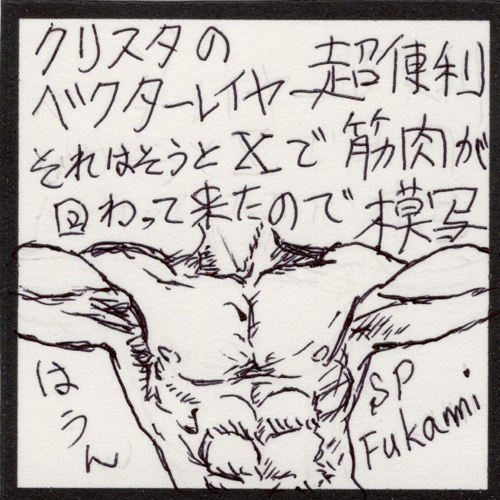 クリスタの
ベクターレイヤー超便利
それはそうとXで筋肉が
回わって来たので模写
はうん
SP
Fukami